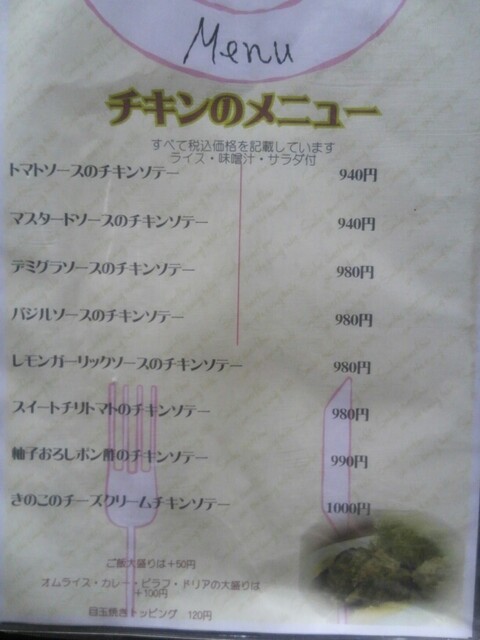 Menu
チキンのメニュー
すべて税込価格を記載しています
ライス・味噌汁・サラダ付
トマトソースのチキンソテー 940円
マスタードソースのチキンソテー 940円
デミグラソースのチキンソテー 980円
バジルソースのチキンソテー 980円
レモンガーリックソースのチキンソテー 980円
スイートチリトマトのチキンソテー 980円
柚子おろしポン酢のチキンソテー 990円
きのこのチーズクリームチキンソテー 1000円
ご飯大盛りは+50円
オムライス・カレー・ピラフ・ドリアの大盛りは
+100円
目玉焼きトッピング 120円